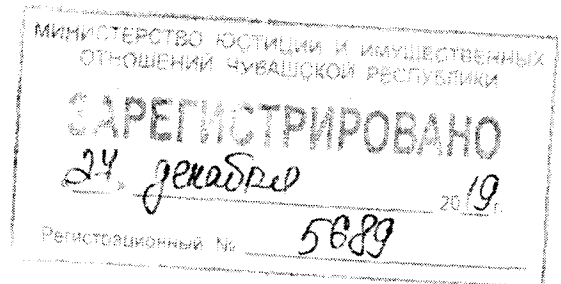 МИНИСТЕРСТВО ЮСТИЦИИ И ИМУЩЕСТВЕННЫХ
ОТНОШЕНИЙ ЧУВАШСКОЙ РЕСПУБЛИКИ
ЗАРЕГИСТРИРОВАНО
24 » декабря 2019 г.
Регистрационный № 5689